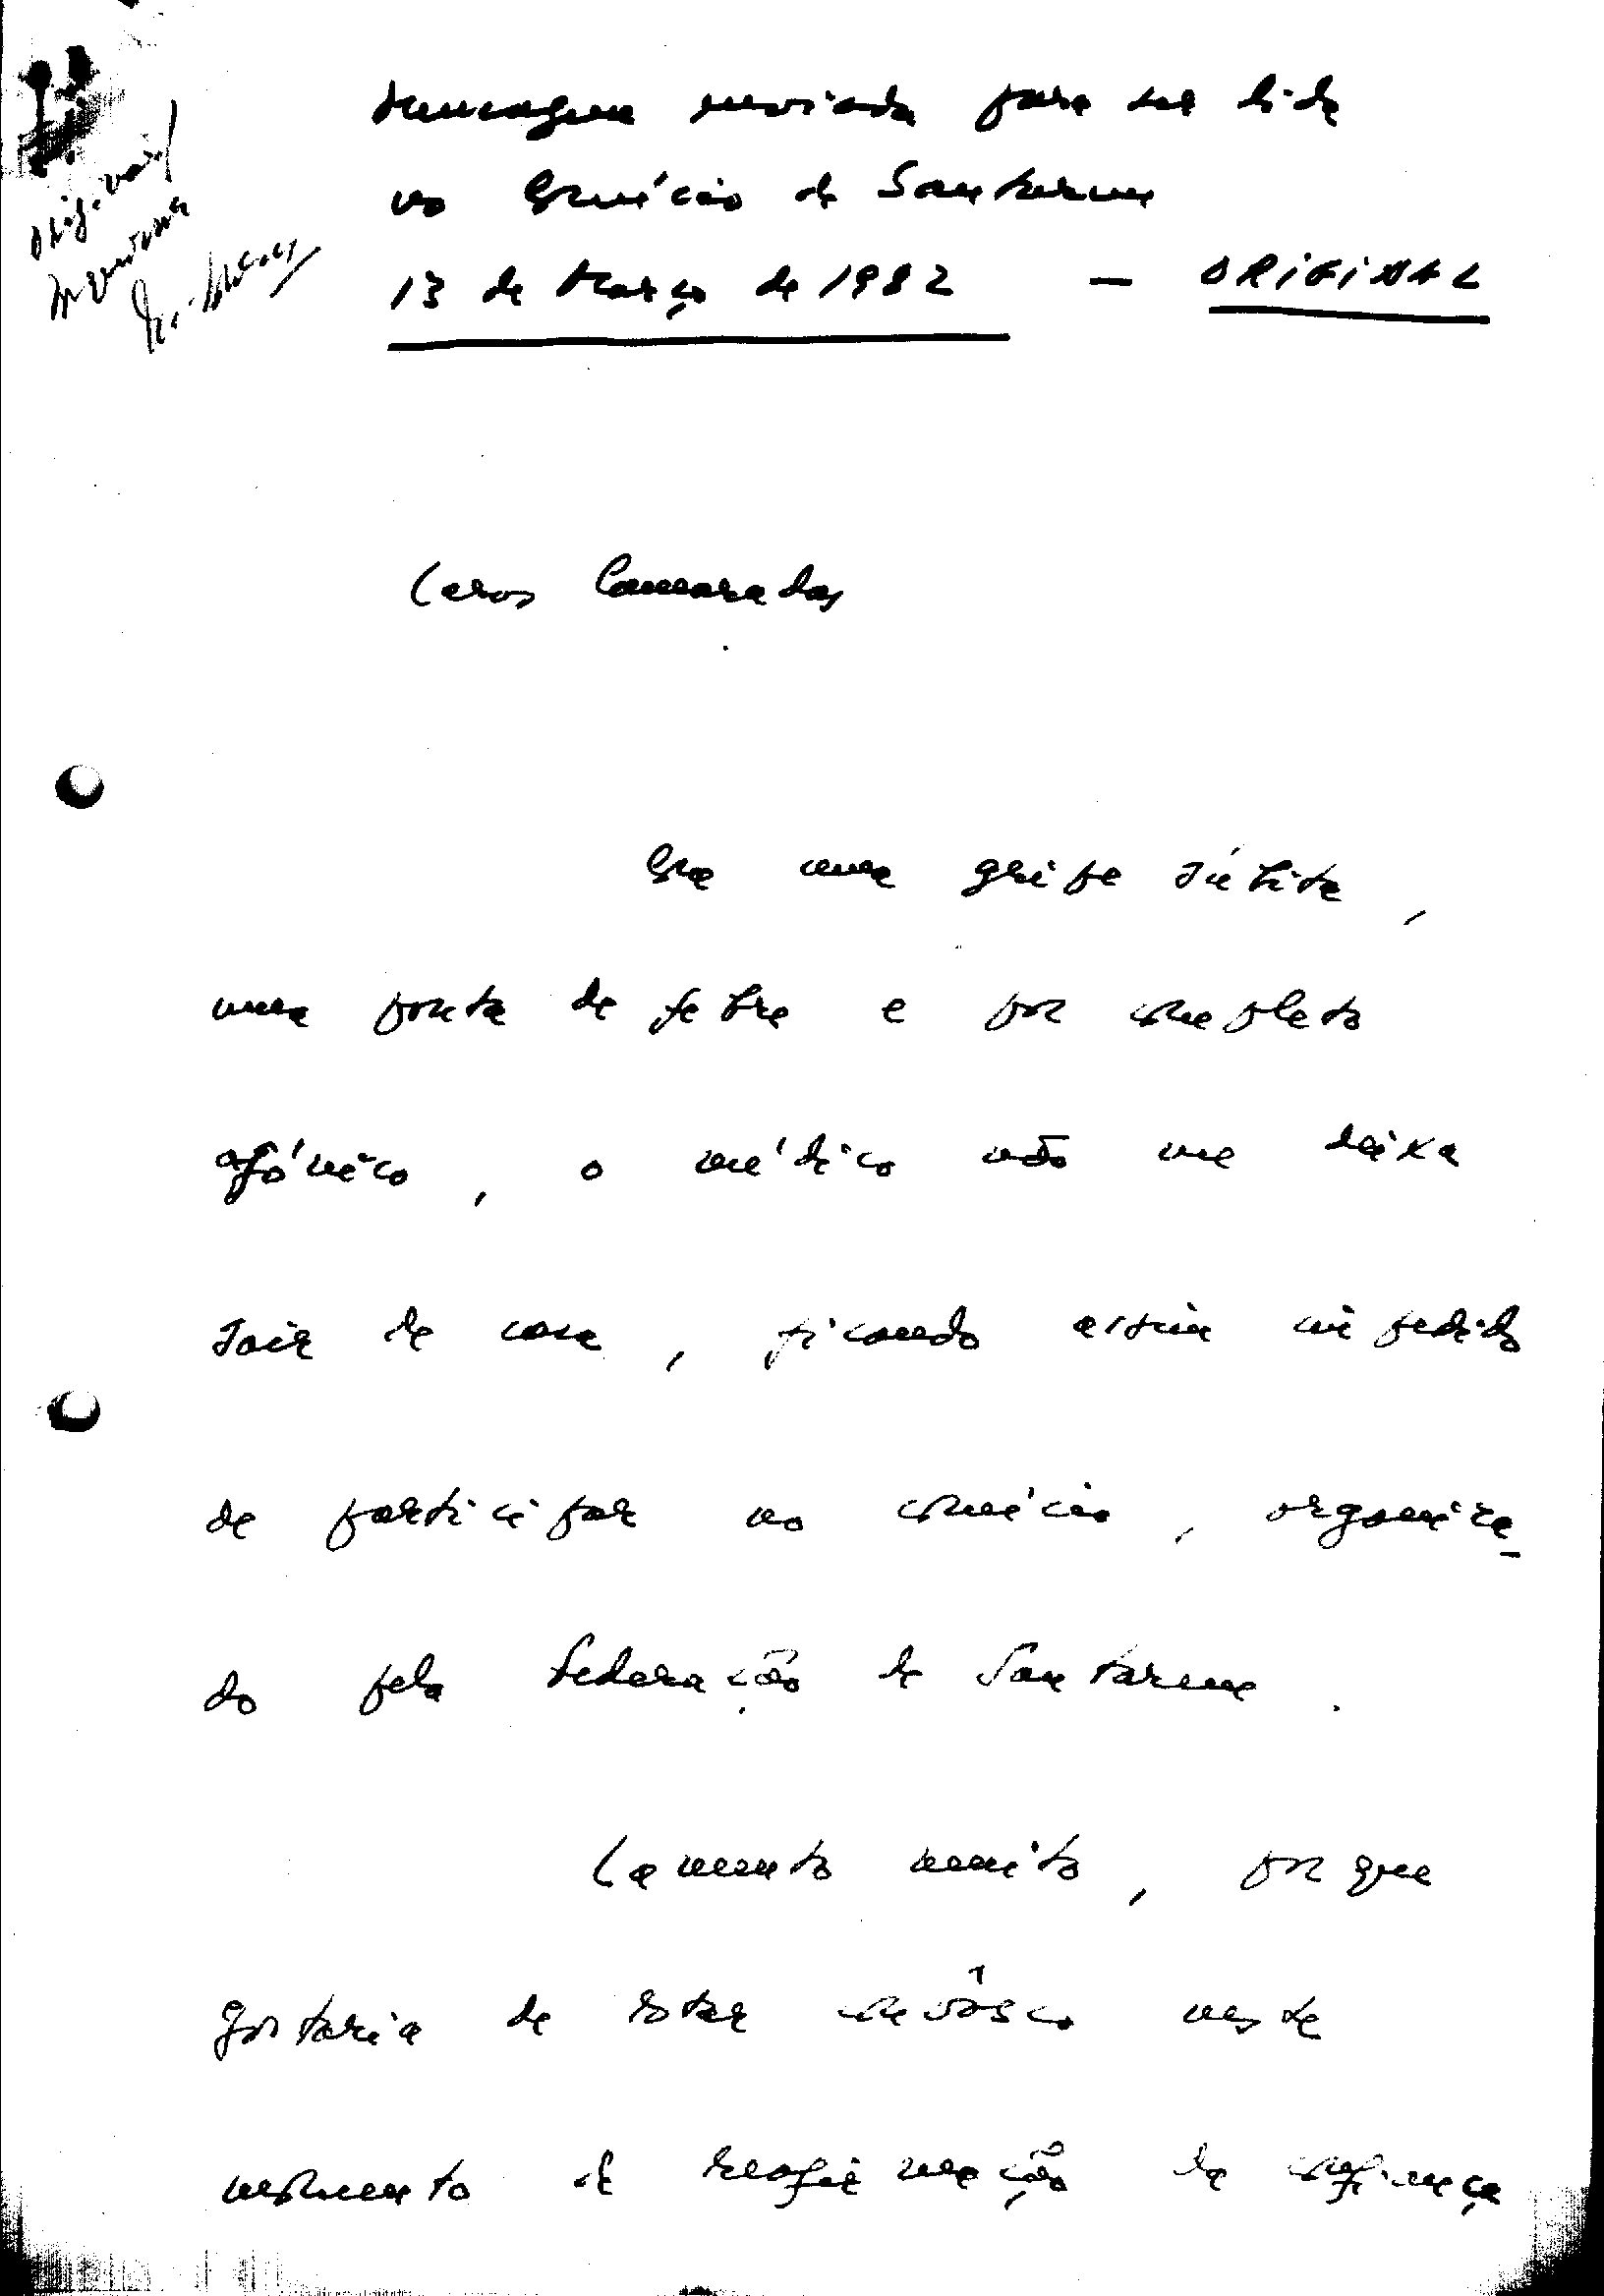 Mensagem enviada para ser lida
no Comício de Santarem
13 de Março de 1982 - ORIGINAL
Caros Camaradas
Com uma gripe súbita,
uma ponta de febre e por completo
afónico, o médico não me deixa
sair de casa, ficando assim impedido
de participar no comício, organiza_
do pela Federação de Santarem.
Lamento muito, porque
gostaria de estar convôsco neste
momento de reafirmação da confiança